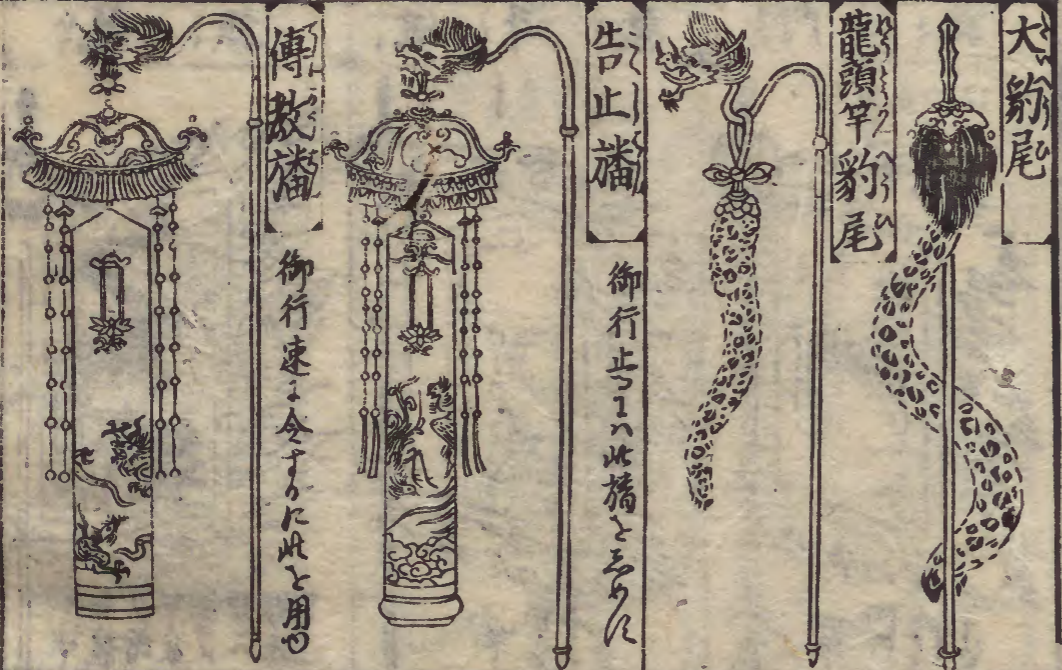 大豹尾
龍頭竿豹尾
告止旛
御行止るには此旛をしめす
傳教旛
御行速に令するに此を用ゆ